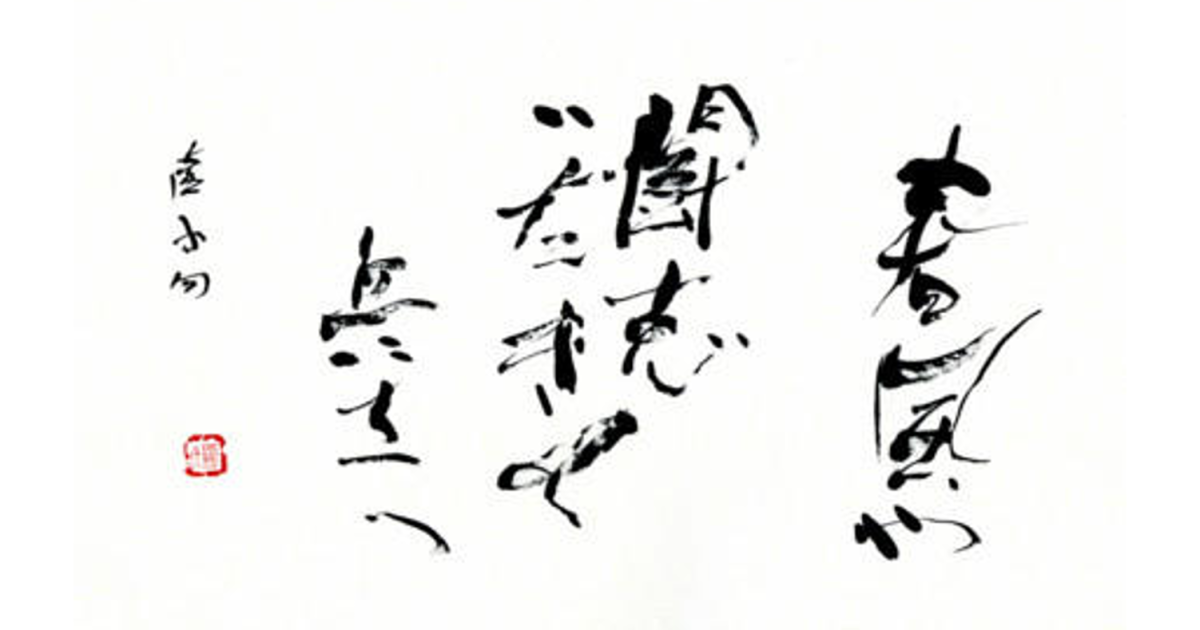 春風や
闘志
いだきて
丘に立つ
虚子句